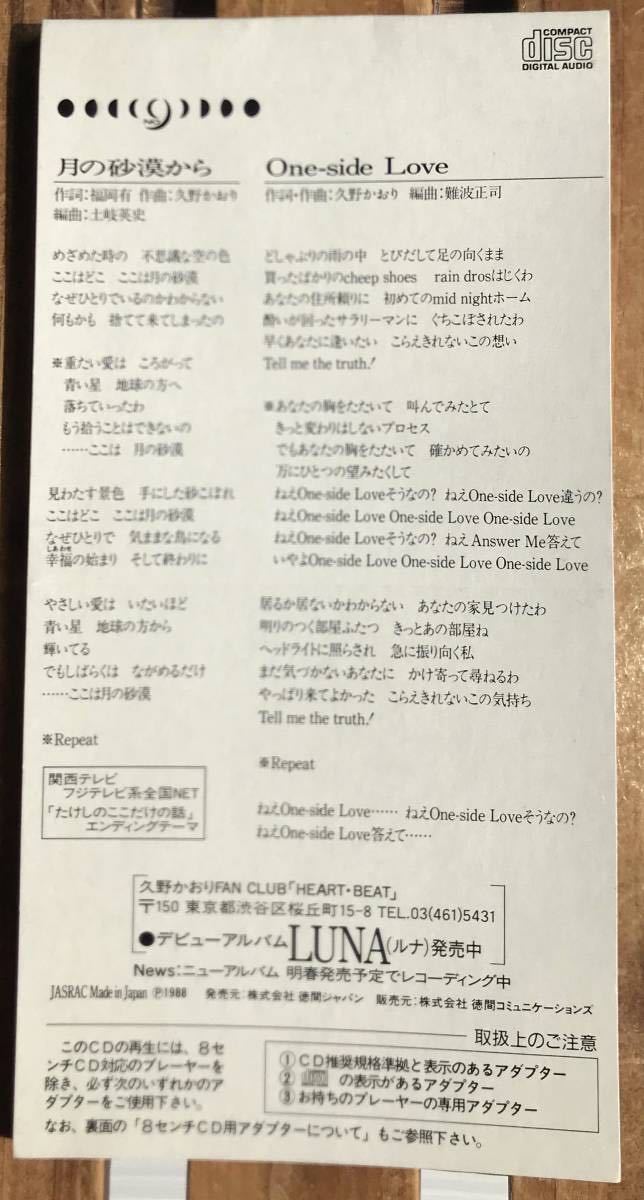 COMPACT
disc
DIGITAL AUDIO
月の砂漠から
作詞:福岡有 作曲:久野かおり
編曲:土岐英史
めざめた時の 不思議な空の色
ここはどこ ここは月の砂漠
なぜひとりでいるのかわからない
何もかも 捨てて来てしまったの
※重たい愛は ころがって
青い星 地球の方へ
落ちていったわ
もう拾うことはできないの
……ここは 月の砂漠
見わたす景色 手にした砂こぼれ
ここはどこ ここは月の砂漠
なぜひとりで 気ままな鳥になる
しあわせ
幸福の始まり そして終わりに
やさしい愛は いたいほど
青い星 地球の方から
輝いてる
でもしばらくは ながめるだけ
……ここは月の砂漠
※Repeat
関西テレビ
フジテレビ系全国NET
「たけしのここだけの話」
エンディングテーマ
One-side Love
作詞・作曲:久野かおり 編曲:難波正司
どしゃぶりの雨の中 とびだして足の向くまま
買ったばかりのcheep shoes rain drosはじくわ
あなたの住所頼りに 初めてのmid nightホーム
酔いが回ったサラリーマンに ぐちこぼされたわ
早くあなたに逢いたい こらえきれないこの想い
Tell me the truth!
※あなたの胸をたたいて 叫んでみたとて
きっと変わりはしないプロセス
でもあなたの胸をたたいて 確かめてみたいの
万にひとつの望みたくして
ねえOne-side Loveそうなの? ねえOne-side Love違うの?
ねえOne-side Love One-side Love One-side Love
ねえOne-side Loveそうなの? ねえAnswer Me答えて
いやよOne-side Love One-side Love One-side Love
居るか居ないかわからない あなたの家見つけたわ
明りのつく部屋ふたつ きっとあの部屋ね
ヘッドライトに照らされ 急に振り向く私
まだ気づかないあなたに かけ寄って尋ねるわ
やっぱり来てよかった こらえきれないこの気持ち
Tell me the truth!
※Repeat
ねえOne-side Love…… ねえOne-side Loveそうなの?
ねえOne-side Love答えて……
久野かおりFAN CLUB「HEART・BEAT」
〒150 東京都渋谷区桜丘町15-8 TEL.03(461)5431
●デビューアルバムLUNA(ルナ)発売中
News:ニューアルバム 明春発売予定でレコーディング中
JASRAC Made in Japan Ⓟ1988 発売元:株式会社 徳間ジャパン 販売元:株式会社 徳間コミュニケーションズ
取扱上のご注意
このCDの再生には、8セ
ンチCD対応のプレーヤーを
除き、必ず次のいずれかのア
ダプターをご使用下さい。
①CD推奨規格準拠と表示のあるアダプター
② の表示があるアダプター
③お持ちのプレーヤーの専用アダプター
なお、裏面の「8センチCD用アダプターについて」もご参照下さい。